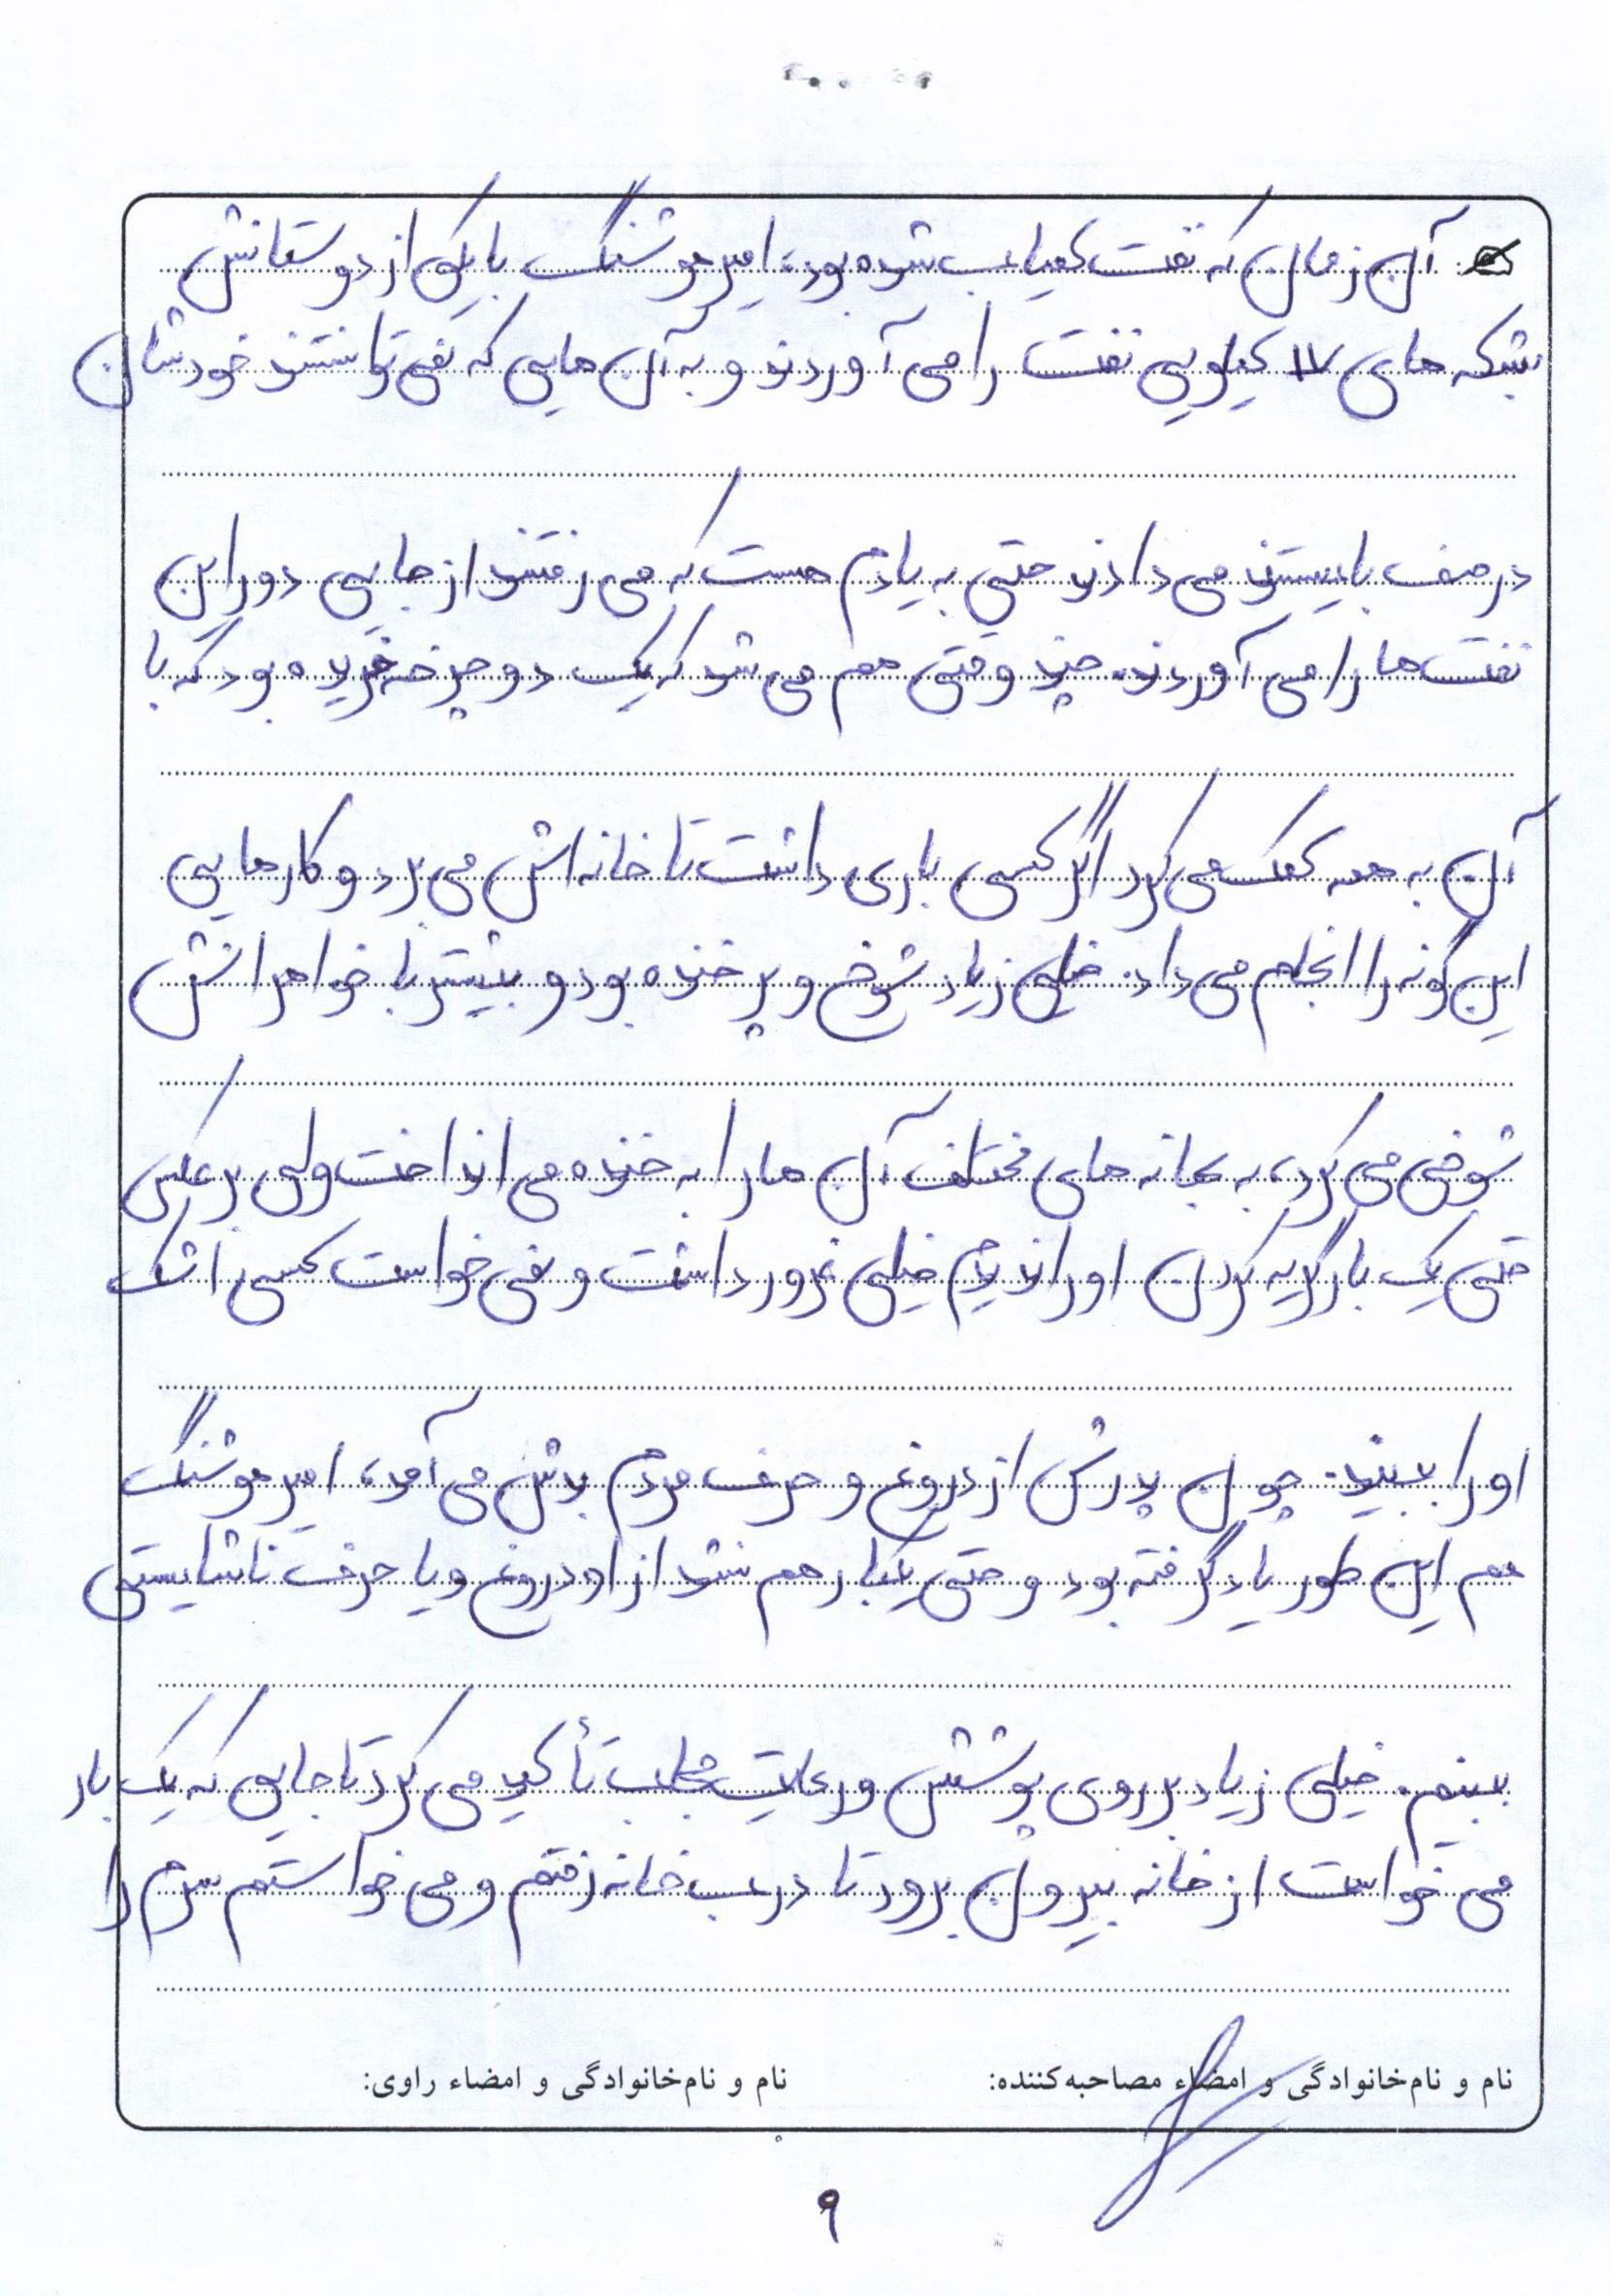 آن زمان که نفت کمیاب شده بود، امیرهوشنگ با یکی از دوستانش
بشکه های ۱۷ کیلویی نفت را می آوردند و به آن هایی که نمی توانستند خودشان
در صف بایستند می دادند حتی به یادم هست که می رفتند از جایی دور این
نفت ها را می آوردند. چند وقتی هم می شد که یک دوچرخه خریده بود که با
آن به همه کمک می کرد اگر کسی باری داشت تا خانه اش می برد و کارهایی
این گونه را انجام می داد. خیلی زیاد شوخ و پر خنده بود و بیشتر با خواهرانش
شوخی می کرد، به بهانه های مختلف آن ها را به خنده می انداخت ولی برعکس
حتی یک بار گریه کردن او را ندیدم خیلی غرور داشت و نمی خواست کسی اشک
او را ببیند. چون پدرش از دروغ و حرف مردم بدش می آمد، امیرهوشنگ
هم این طور یاد گرفته بود و حتی یکبار هم نشد از او دروغ و یا حرف ناشایستی
ببینم. خیلی زیاد بر روی پوشش و رعایت حجاب تأکید می کرد تا جایی که یک بار
می خواست از خانه بیرون برود تا درب خانه رفتم و می خواستم سرم را
نام و نام‌خانوادگی و امضاء مصاحبه‌کننده: نام و نام‌خانوادگی و امضاء راوی:
۹